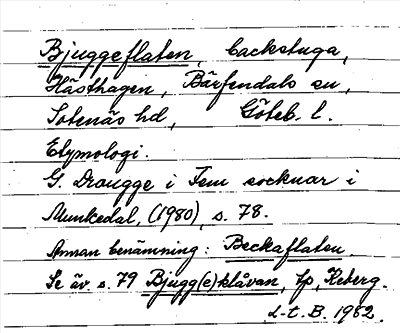 Bjuggeflaten, backstuga,
Hästhagen, Bärfendals sn,
Sotenäs hd, Göteb. l.
Etymologi.
G. Draugge i Fem socknar i
Munkedal, (1980), s. 78.
Annan benämning: Beckaflaten.
Se äv. s. 79 Bjugg(e)klåvan, lp, Keberg.
L-t. B. 1982.